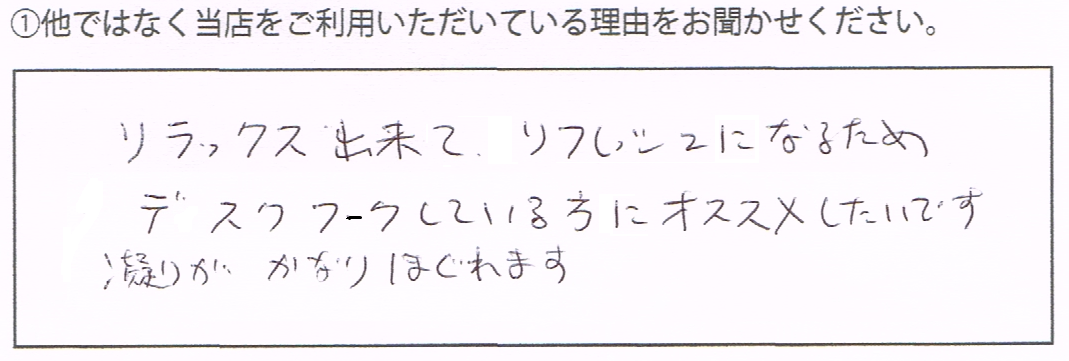 ①他ではなく当店をご利用いただいている理由をお聞かせください。
リラックス出来て、リフレッシュになるため
デスクワークしている方にオススメしたいです
凝りが かなりほぐれます